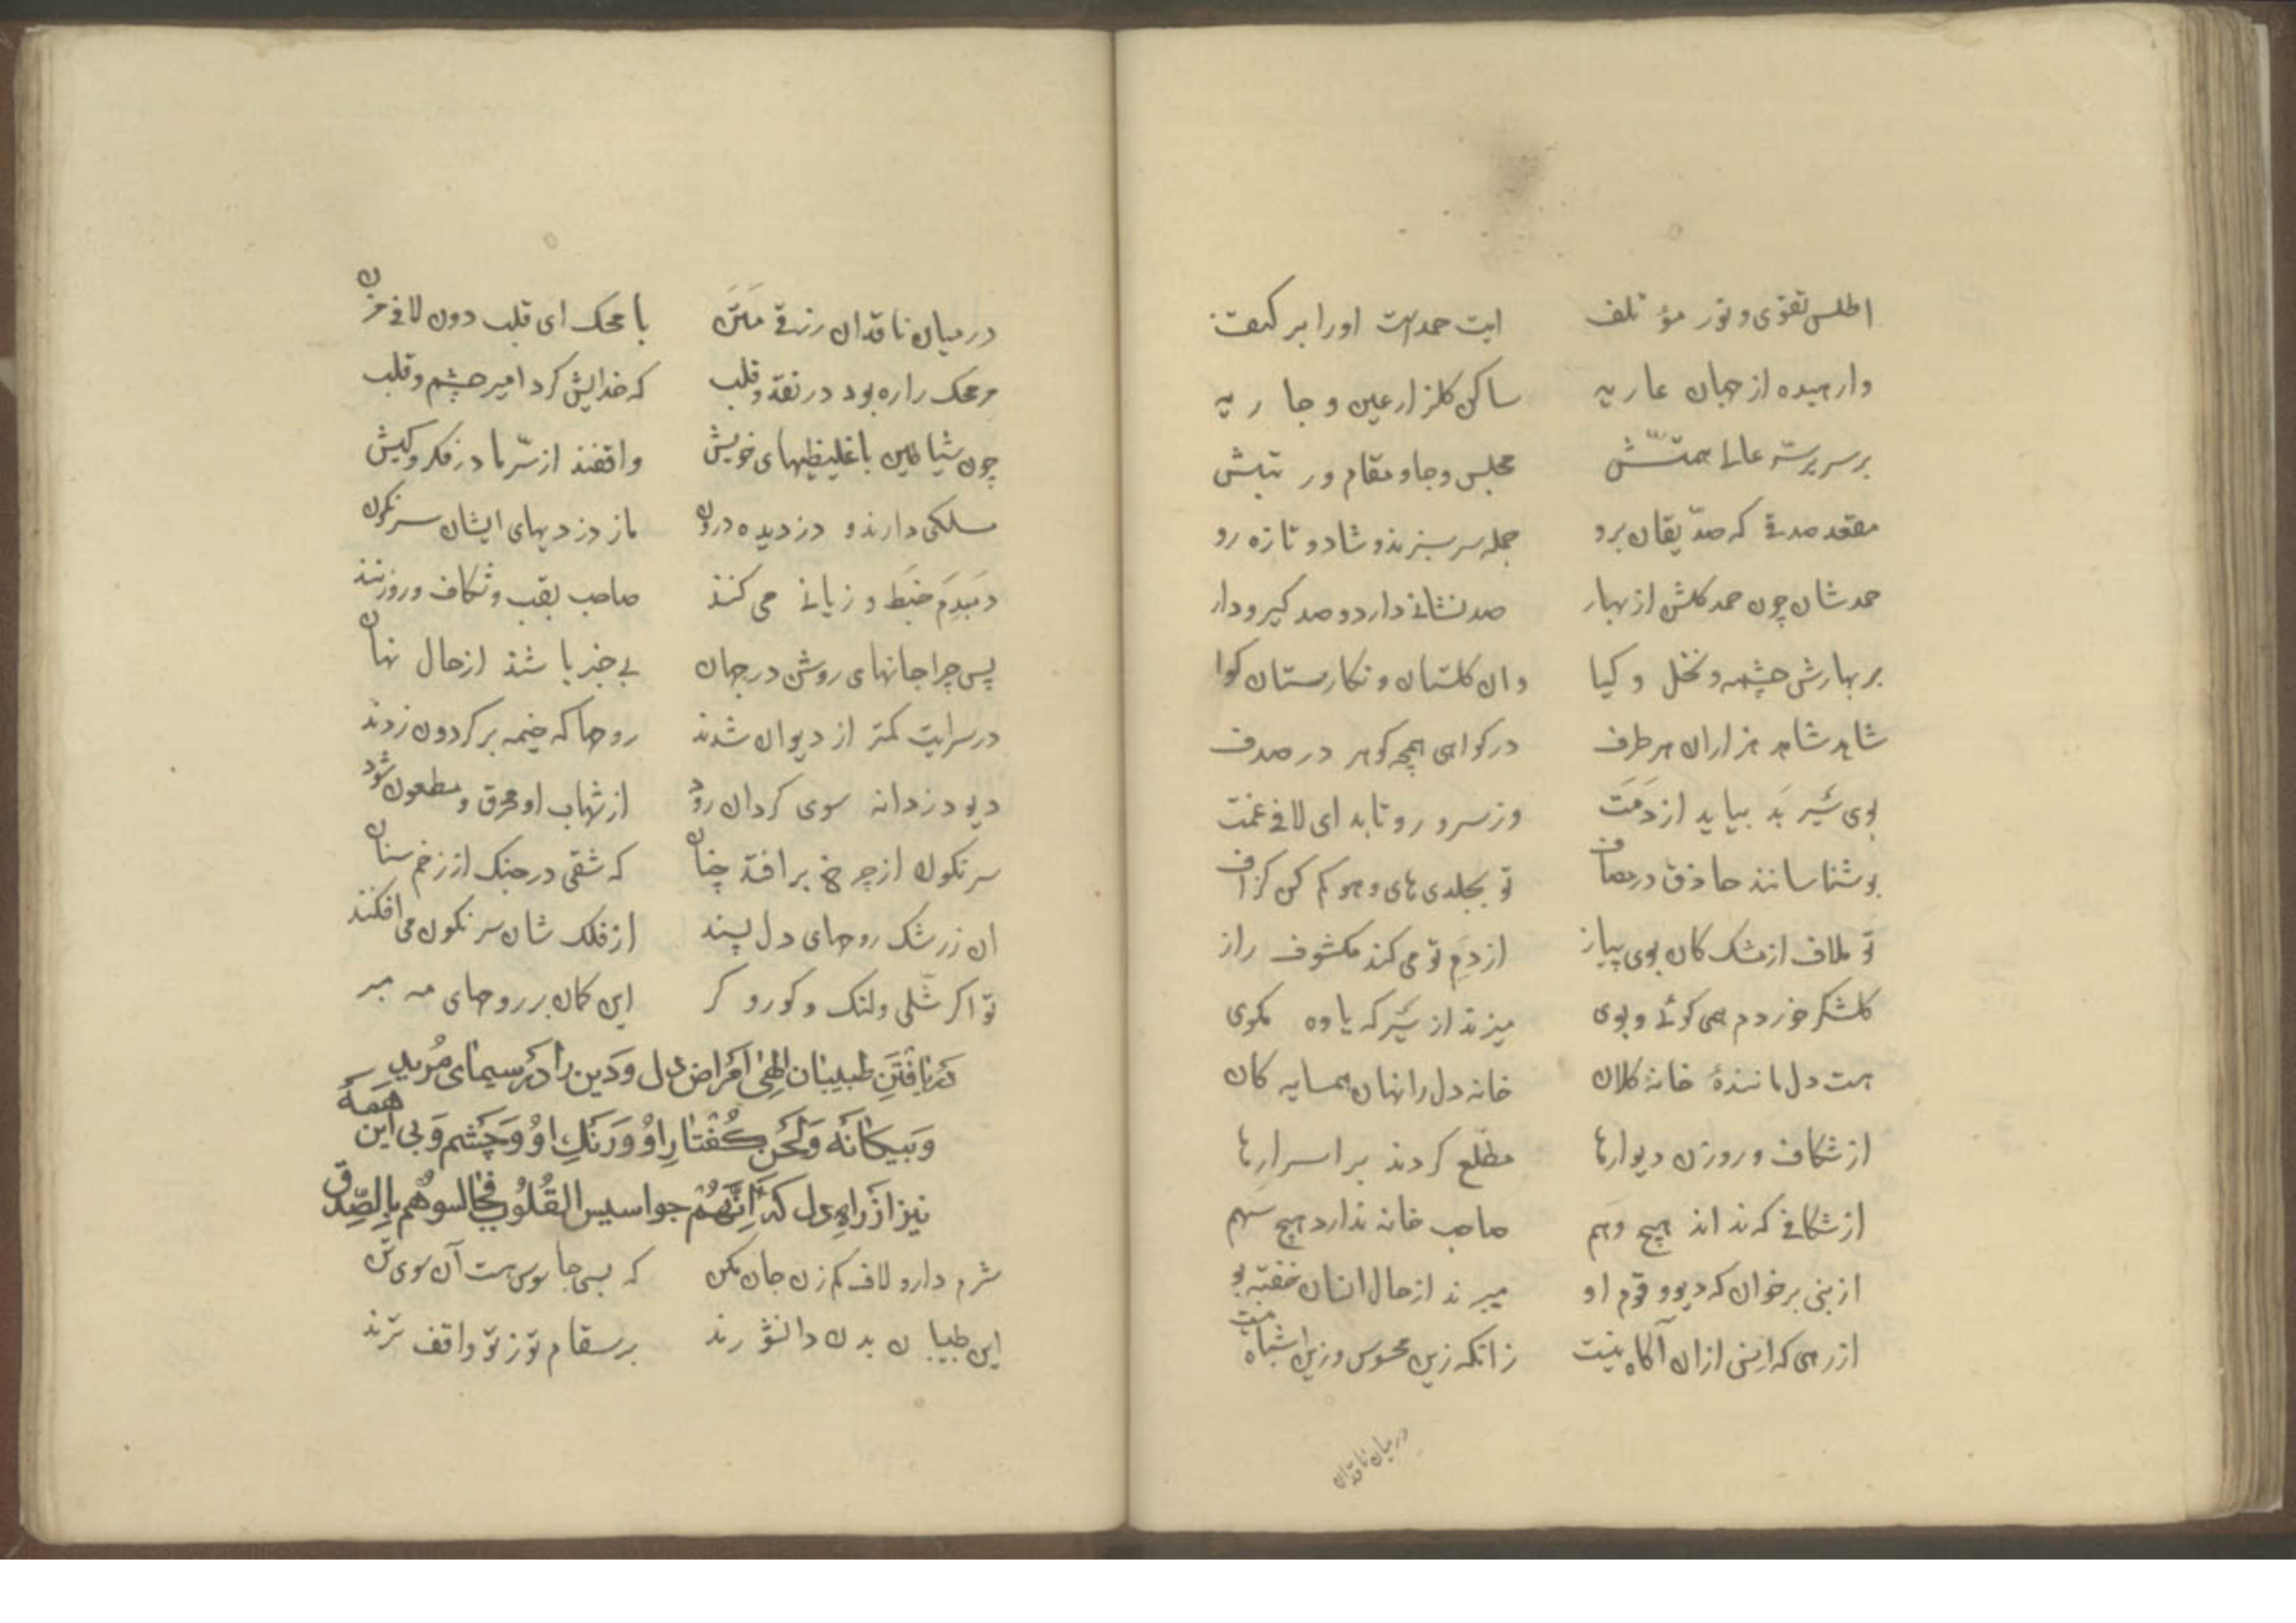 اطلس تقوی و نور مؤتلف ایت حمدست اورا بر کتف
وارهیده از جهان عاریه ساکن کلزار عین و جاریه
بر سریر سّر عالی همتّش مجلس و جا و مقام و رتبتش
مقعد صدقی که صدّیقان برو جمله سرسبزند و شاد و تازه رو
حمدشان چون حمد کلشن از بهار صد نشانی دارد و صد کیر و دار
بر بهارش چشمه و نخل و کیا وان کلستان و نکارستان کوا
شاهد شاهد هزاران هر طرف در کواهی همچو کوهر در صدف
بوی سَیر بَد بیاید از دَمَت وز سر و رو تابد ای لافی غمت
بو شناسانند حاذق در مصاف تو بجلدی های و هو کم کن کزاف
تو ملاف از مشک کان بوی پیاز از دَم تو می کند مکشوف راز
کلشکر خوردم همی کوئی و بوی میزند از سَیر که یاوه مکوی
هست دل مانندهٔ خانهٔ کلان خانه دل را نهان همسایه کان
از شکاف و روزن دیوارها مطّلع کردند بر اسرارها
از شکافی که نداند هیچ وَهم صاحب خانه ندارد هیچ سَهم
از نبی برخوان که دیو و قوم او میبرند از حال انسان خفیه بو
از رهی که اِنس ازان آکاه نیست زانکه زین محسوس وزین اشباه نیست
درمیان ناقدان
درمیان ناقدان زرقی مَتَن با محک ای قلب دون لافی مزن
مر محک را ره بود در نقد و قلب که خدایش کرد امیر جسم و قلب
چون شیاطین با غلیظیهای خویش واقفند از سّر ما در فکر و کیش
مسلکی دارند و دزدیده درون ماز دزدیهای ایشان سرنکون
دَمبَدِم خَبَط و زیانی می کنند صاحب نقب و شکاف و روزنند
پس چرا جانهای روشن در جهان بی خبر باشند از حال نهان
در سرایت کمتر از دیوان شدند روحها که خیمه بر کردون زدند
دیو دزدانه سوی کردان رود از شهاب او محرق و مطعون شود
سرنکون از چرخ بر افتد چنان که شقی در جنک از زخم سنان
ان زرشک روحهای دل پسند از فلک شان سرنکون می افکنند
تو اکر شّلی و لنک و کور و کر این کمان بر روحهای مه مبر
دَریافتَنِ طبیبان الهی اَمراض دل وَدین را دَر سیمای مُرید
وَبیکانَه وَلحَن کُفتارِ اوُ وَرَنکِ اوُ وَچَشم وَبی این هَمَهُ
نیز اَز راهِ دل کهَ اِنَّهُمْ جواسیس القُلُوب فجالسوهُم بِالصّدق
شرم دار و لاف کم زن جان مکن که بسی جاسوس هست آن سوی تن
این طبیبان بدن دانشورند بر سقام تو ز تو واقف ترند